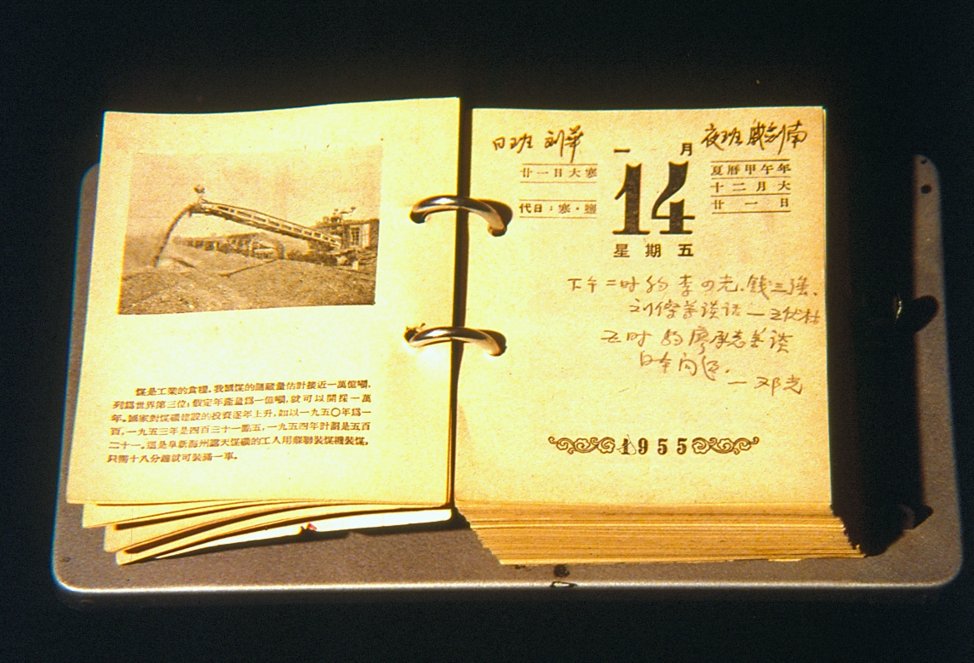 煤是工業的食糧。我國煤的儲藏量估計接近一萬億噸,
列爲世界第三位;假定年產量爲一億噸,就可以開採一萬
年。國家對煤礦建設的投資逐年上升,如以一九五〇年爲一
百,一九五三年是四百三十一點五,一九五四年計劃是五百
二十一。這是阜新海州露天煤礦的工人用聯裝煤機裝煤,
只需十八分鐘就可裝滿一車。
日班 刘华
夜班 戚剑南
一月
14
星期五
廿一日大寒
代日:寒·鹽
夏曆甲午年
十二月大
廿一日
下午二时约李四光.钱三强.
刘杰等谈话—王伏林
五时约廖承志等谈
日本问题.
—邓光
1955